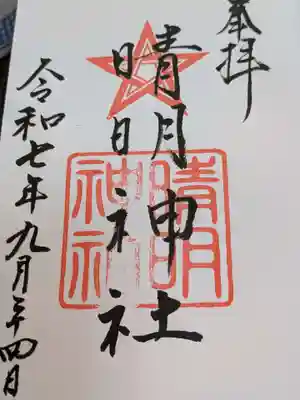 奉拝
晴明神社
晴明
神社
令和七年九月二十四日